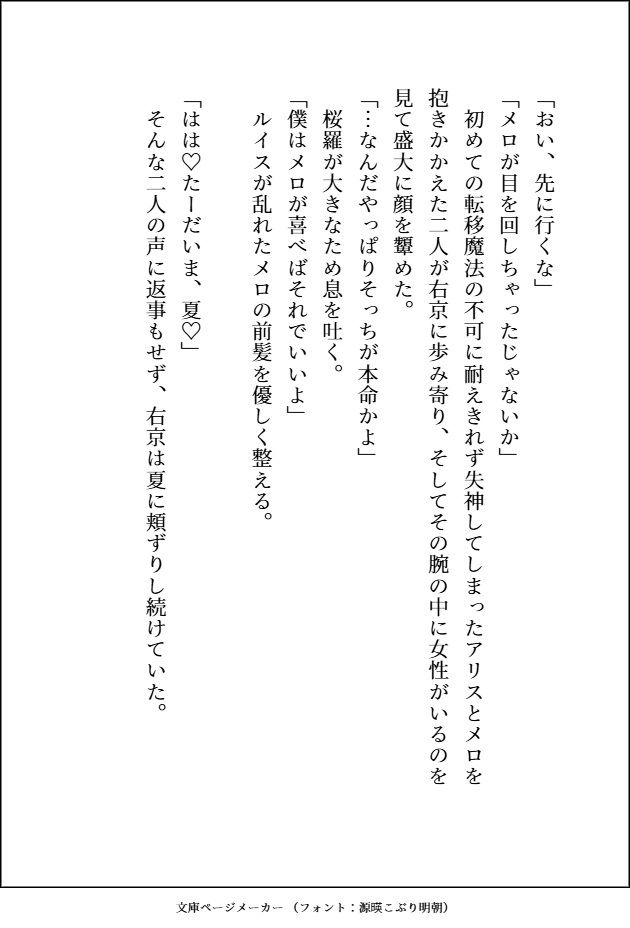 「おい、先に行くな」
「メロが目を回しちゃったじゃないか」
　初めての転移魔法の不可に耐えきれず失神してしまったアリスとメロを
抱きかかえた二人が右京に歩み寄り、そしてその腕の中に女性がいるのを
見て盛大に顔を顰めた。
「…なんだやっぱりそっちが本命かよ」
　桜羅が大きなため息を吐く。
「僕はメロが喜べばそれでいいよ」
　ルイスが乱れたメロの前髪を優しく整える。
「はは♡たーだいま、夏♡」
　そんな二人の声に返事もせず、右京は夏に頬ずりし続けていた。
文庫ページメーカー（フォント：源暎こぶり明朝）